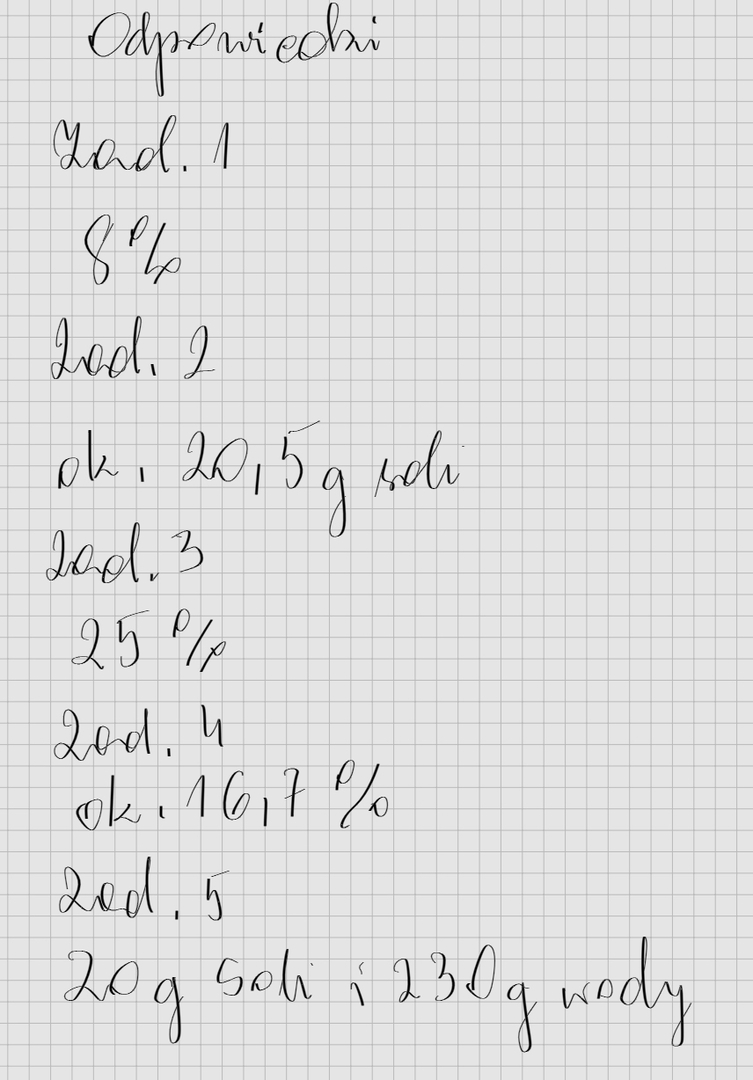 Odpowiedzi
Zad. 1
8%
Zad. 2
ok. 20,5g soli
Zad. 3
25%
Zad. 4
ok. 16,7%
Zad. 5
20g soli i 230g wody